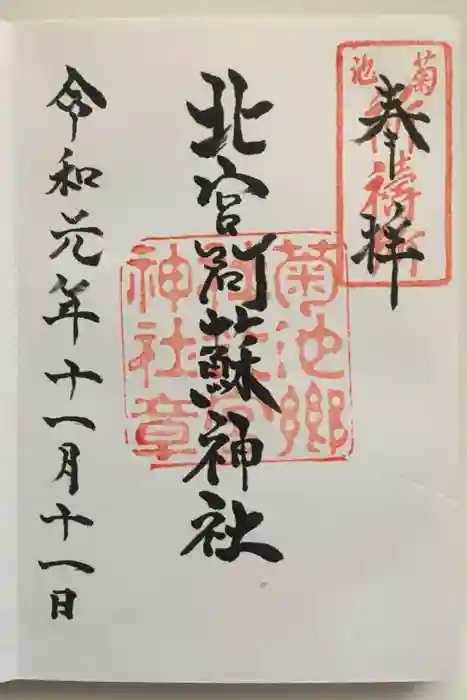 菊池
奉拝
北宮阿蘇神社
菊池郷
神社章
令和元年十一月十一日